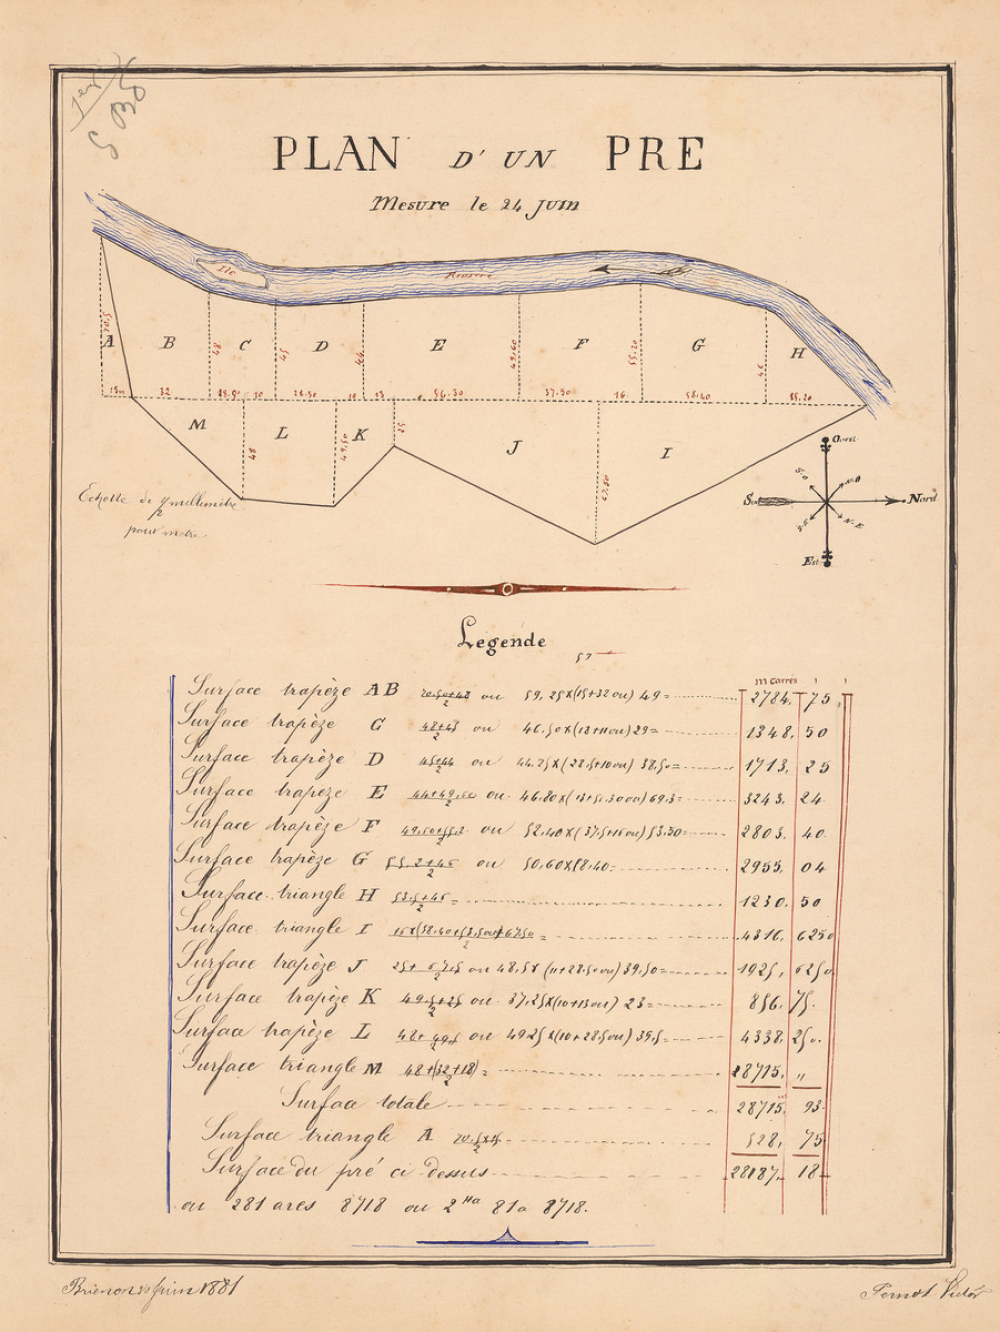 PLAN D'UN PRE
Mesure le 24 Juin
Ile
Riviere
A B C D E F G H
70,5 48 45 44 49,60 55,20 45
15m 32 18.50 10 28.50 10 13 56.30 37.50 16. 58.40 55.20
M L K J I
48 49,50 25 67.50
Echelle de 1/2 millimètre
pour mètre.
Ouest
S-O N-O
Sud Nord
S-E N-E
Est
Legende
57
m carrés
Surface trapèze AB 70.50+48/2 ou 59,25x(15+32 ou) 49= 2784, 75
Surface trapèze C 48+45/2 ou 46.50x(18+11 ou) 29= 1348, 50
Surface trapèze D 45+44/2 ou 44.25x(28.5+10 ou) 38.50= 1713, 25
Surface trapèze E 44+49,60/2 ou 46.80x(13+56.30 ou) 69.3= 3243, 24
Surface trapèze F 49.60+55.2/2 ou 52.40x(37.5+16 ou) 53.50= 2803, 40
Surface trapèze G 55.2+46/2 ou 50,60x58.40= 2955, 04
Surface triangle H 53.5+46/2= 1230, 50
Surface triangle I 67.50= 4316, 6250
Surface trapèze J 25+67.5/2 ou 48,5x(11+28.50 ou) 39,50= 1925, 6250
Surface trapèze K 49.5+25/2 ou 37,25x(10+13 ou) 23= 856, 75
Surface trapèze L 48+49,5/2 ou 4925x(10+28.5 ou) 39,5= 4338, 250
Surface triangle M 48+(32+18)/2= 28715, "
Surface totale 28715, 93
Surface triangle A 70.5x15/2 528, 75
Surface du pré ci-dessus 28187, 18
ou 281 ares 8718 ou 2 Ha 81a 8718.
Brienon 24 Juin 1881
Pernot Victor